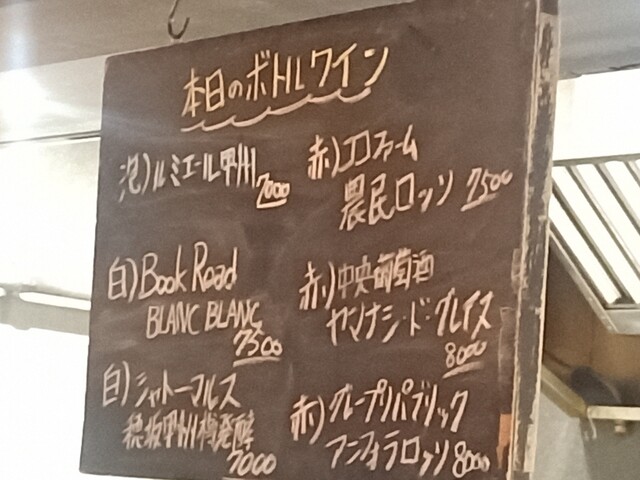 本日のボトルワイン
泡)ルミエール甲州
7000
白)Book Road
BLANC BLANC
7500
白)シャトーマルス
穂坂甲州樽発酵
7000
赤)ココファーム
農民ロッソ 7500
赤)中央葡萄酒
ヤマナシ・ド・グレイス
8000
赤)グレープリパブリック
アンフォラロッソ 8000